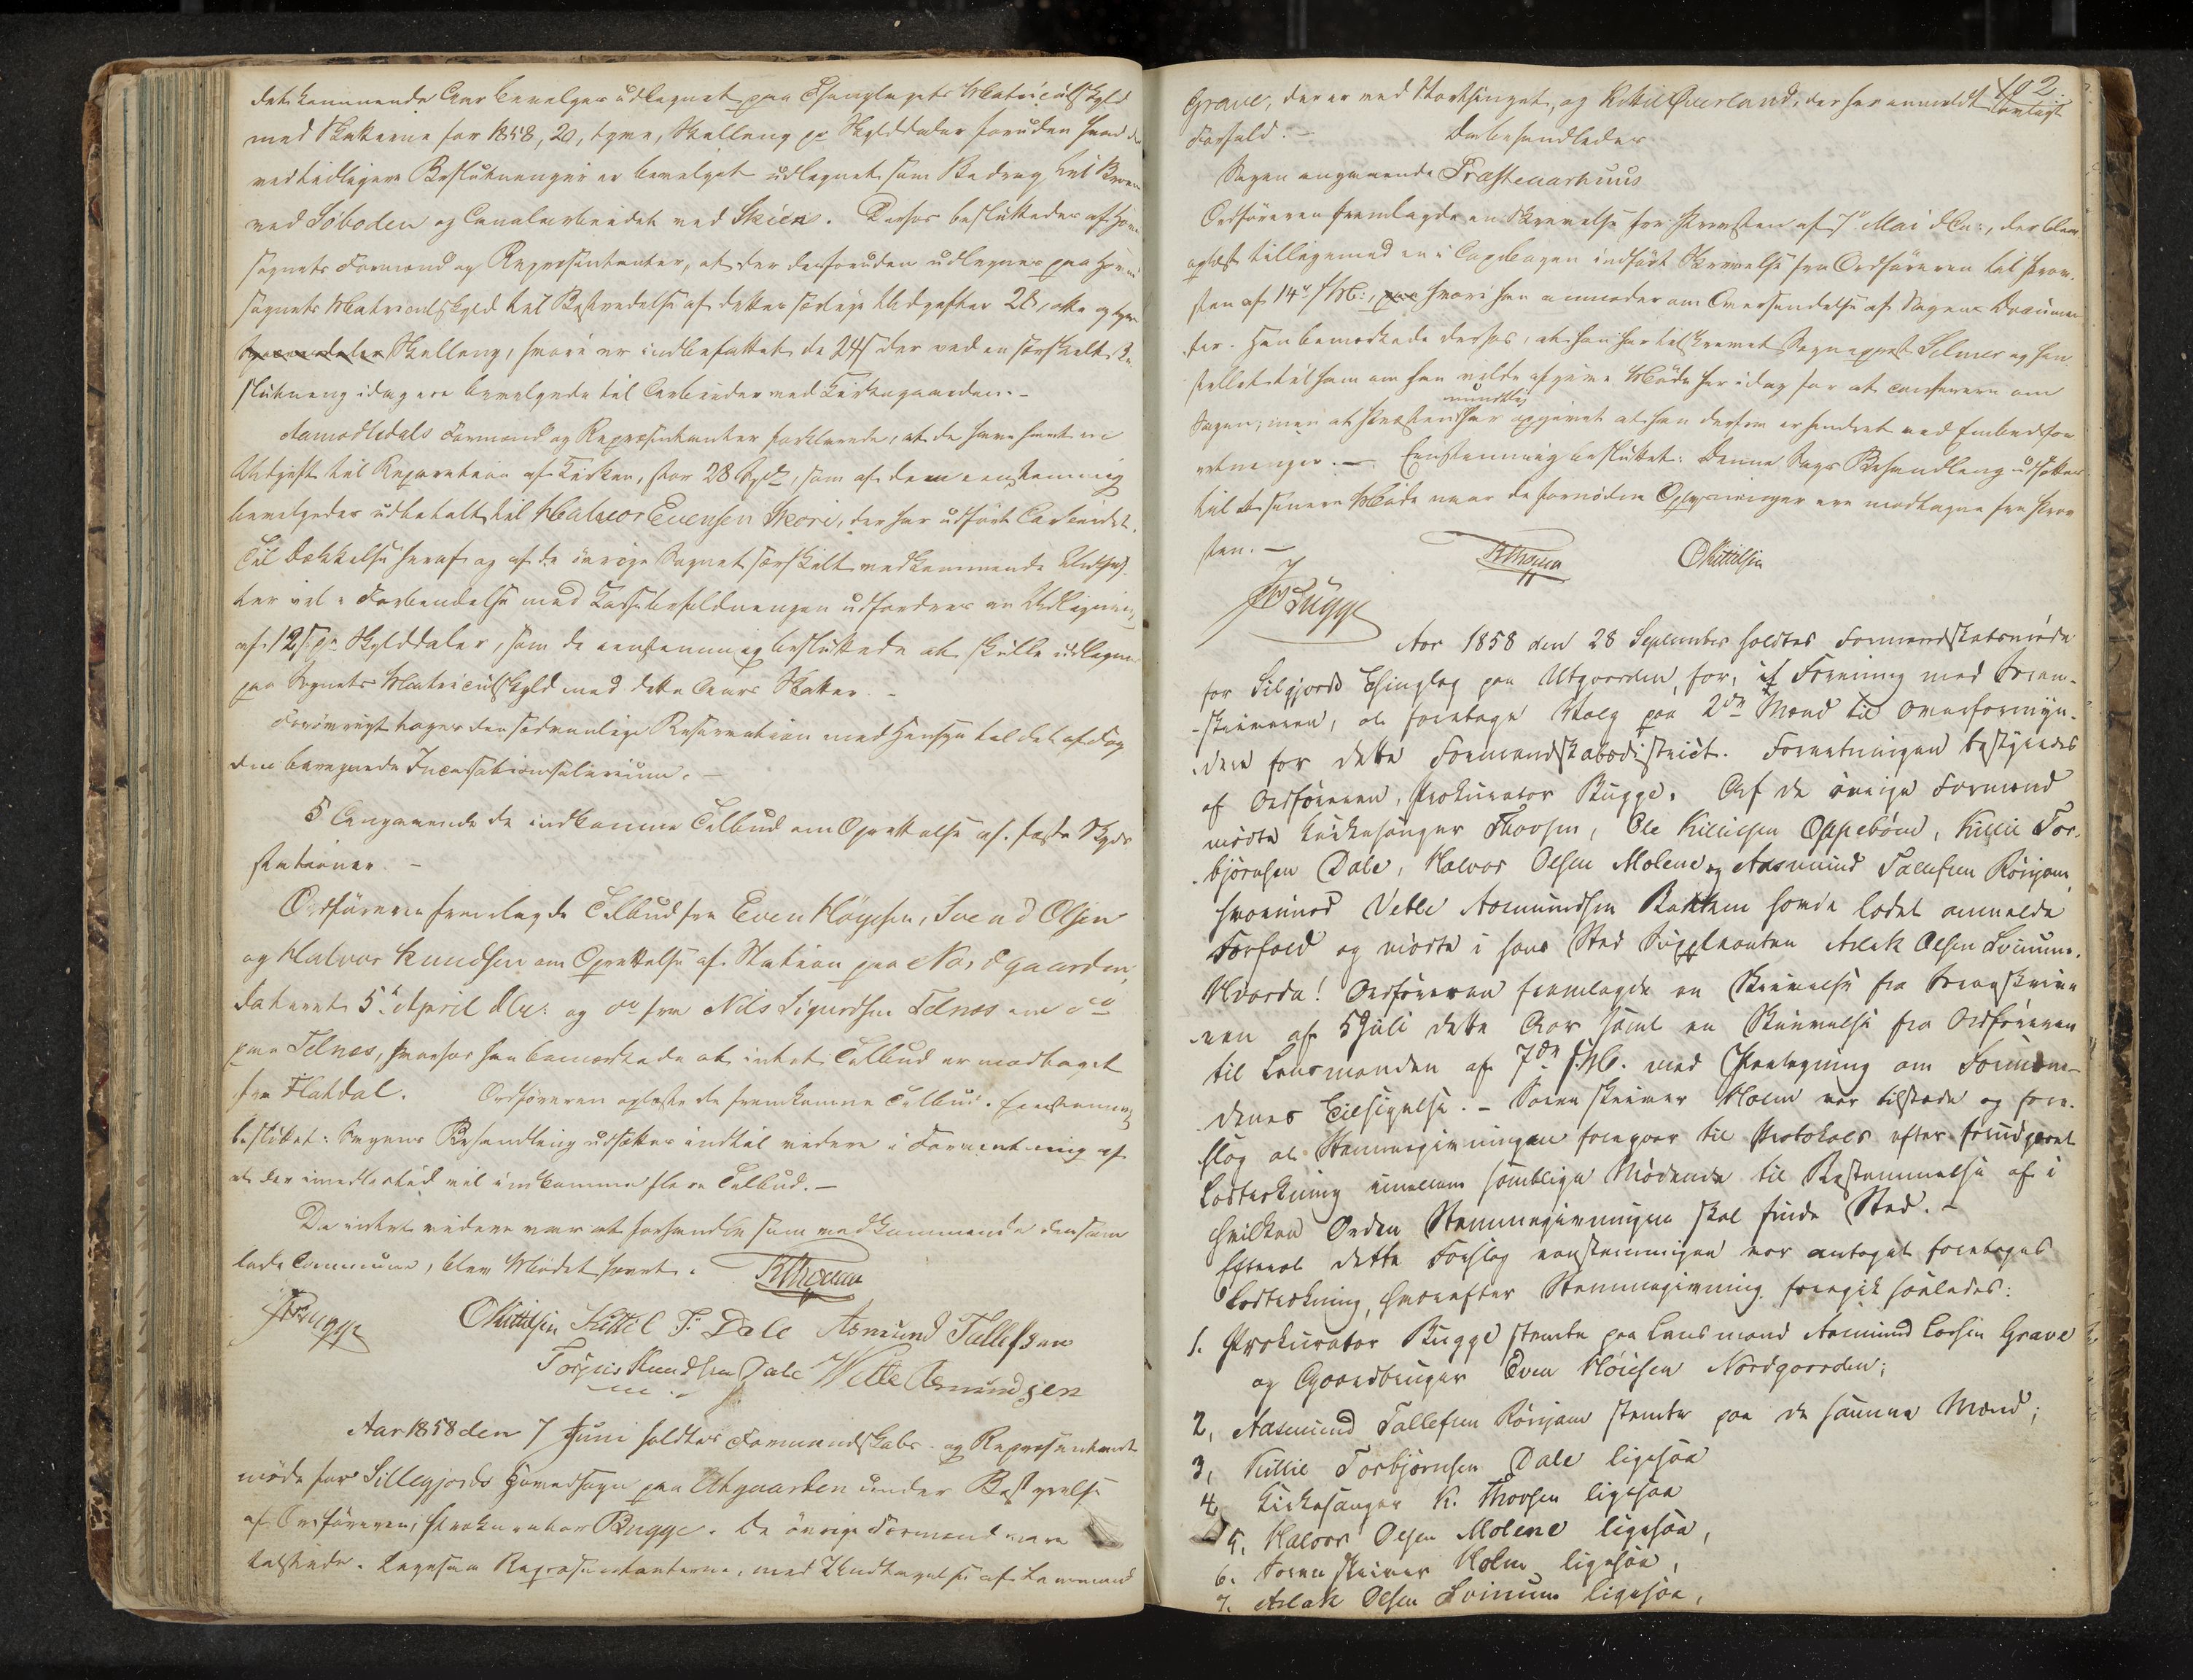 det kommende Aar bevilges udlignet paa Thinglagets Matriculskyld
med Skatterne for 1858, 20, tyve, Skilling pr Skylddaler foruden hvad der
ved tidligere Beslutninger er bevilget udlignet som Bidrag til Broen
ved Löboden og Canalarbeidet ved Skien. Derhos besluttedes af Hoved
sognets Formænd og Repræsentanter, at der desforuden udlignes paa Hoved
sognets Matriculskyld til Bestridelse af dettes særlige Udgifter 28, otte og tyve
Skilling, hvori er indbefattet de 24 s der ved en særskilt Be
slutning idag ere bevilgede til Arbeider ved Kirkegaarden.-
Aamodtsdals Formænd og Repræsentanter forklarede, at de have havt en
Udgift til Reparation af Kirken, stor 28 Spd, som af dem eenstemmig
bevilgedes udbetalt til Halvor Evensen Skori, der har udført Arbeidet.
Til Dækkelse heraf og af de övrige Sognet særskilt vedkommende Udgif
ter vil i Forbindelse med Kassebeholdningen udfordres en Udligning
af 12 s pr Skylddaler, som de eenstemmig besluttede at skulle udlignes
paa Sognets Matriculskyld med dette Aars Skatter. -
Forövrigt toges den sædvanlige Reservation med Hensyn til det af Fog
den beregnede Incassationssalarium. -
5 Angaaende de indkomne Tilbud om Oprettelse af faste Skyds
stationer. -
Ordföreren fremlagde Tilbud fra Even Höyesen, Svend Olsen
og Halvor Knudsen om Oprettelse af Station paa Nordgaarden,
dateret 5te April d.A. og do fra Nils Sigurdsen Telnes om do
paa Telnes, hvorhos han bemærkede at intet Tilbud er modtaget
fra Flatdal. Ordföreren oplæste de fremkomne Tilbud. Eenstemmig
besluttet: Sagens Behandling udsættes indtil videre i Forventning af
at der imidlertid vil indkomme flere Tilbud.-
Da intet videre var at forhandle som vedkommende den sam
lede Commune, blev Mödet hævet. KThorsen
JBugge OKittilsen Kittil T. Dale Asmund Tallefsen
Torjus Knudsen Dale Vetle Asmundsen
Aar 1858 den 7 Juni holdtes Formandskabs- og Repræsentant
möde for Sillegjords Hovedsogn paa Utgaarden under Bestyrelse
af Ordföreren, Prokurator Bugge. De övrige Formænd vare
tilstede. Ligesaa Repræsentanterne, med Undtagelse af Lensmand
102.
Grave, der er ved Storthinget, og Kittil Qverland, der har anmeldt lovligt
Forfald. - Da behandledes
Sagen angaaende Præsteaarhuus
Ordföreren fremlagde en Skrivelse fra Provsten af 7de Mai d.A., der blev
oplæst tilligemed en i Copibogen indført Skrivelse fra Ordföreren til Prov
sten af 14de f.M., hvori han anmoder om Oversendelse af Sagens Documen
ter. Han bemærkede derhos, at han har tilskrevet Sognepræst Selmer og hen
stillet til ham om han vilde afgive Möde her idag for at conferere om
Sagen, men at Præsten mundtlig har opgivet at han derfra er hindret ved Embedsfor
retninger. - Eenstemmig besluttet: Denne Sags Behandling udsættes
til et senere Möde naar de fornødne Oplysninger ere modtagne fra Prov
sten. -
KThorsen OKittilsen
JBugge
Aar 1858 den 28 September holdtes Formandskabsmöde
for Silgjords Thinglag paa Utgaarden, for, i Forening med Soren-
-skriveren, at foretage Valg paa 2de Mænd til Overformyn-
-dere for dette Formandskabsdistrict. Forretningen bestyredes
af Ordföreren, Prokurator Bugge. Af de övrige Formænd
mödte Kirkesanger Thorsen, Ole Kittilsen Oppebøen, Kittil Tor-
-bjørnsen Dale, Halvor Olsen Molene og Aasmund Tallefsen Rönjom,
hvorimod Vetle Aasmundsen Bakken havde ladet anmelde
Forfald og mödte i hans Sted Suppleanten Aslak Olsen Loinum.
Hvorda! Ordföreren fremlagde en Skrivelse fra Sorenskrive
-ren af 5 Juli dette Aar samt en Skrivelse fra Ordföreren
til Lensmanden af 7de s.M. med Paategning om Formæn-
denes Tilsigelse. - Sorenskriver Holm var tilstede og fore-
slog at Stemmegivningen foregaar til Protokols efter foregaaet
Lodtrækning imellem samtlige Mödende til Bestemmelse af i
hvilken Orden Stemmegivningen skal finde Sted. -
Efterat dette Forslag eenstemmigen var antaget foretoges
Lodtrækning, hvorefter Stemmegivning foregik saaledes:
1. Prokurator Bugge stemte paa Lensmand Aasmund Larsen Grave
og Gaardbruger Even Höiesen Nordgaarden;
2, Aasmund Tallefsen Rönjom stemte paa de samme Mænd;
3, Kittil Torbjørnsen Dale ligesaa
4, Kirkesanger K. Thorsen ligesaa
5, Halvor Olsen Molene ligesaa,
6. Sorenskriver Holm ligesaa,
7. Aslak Olsen Loinum ligesaa,